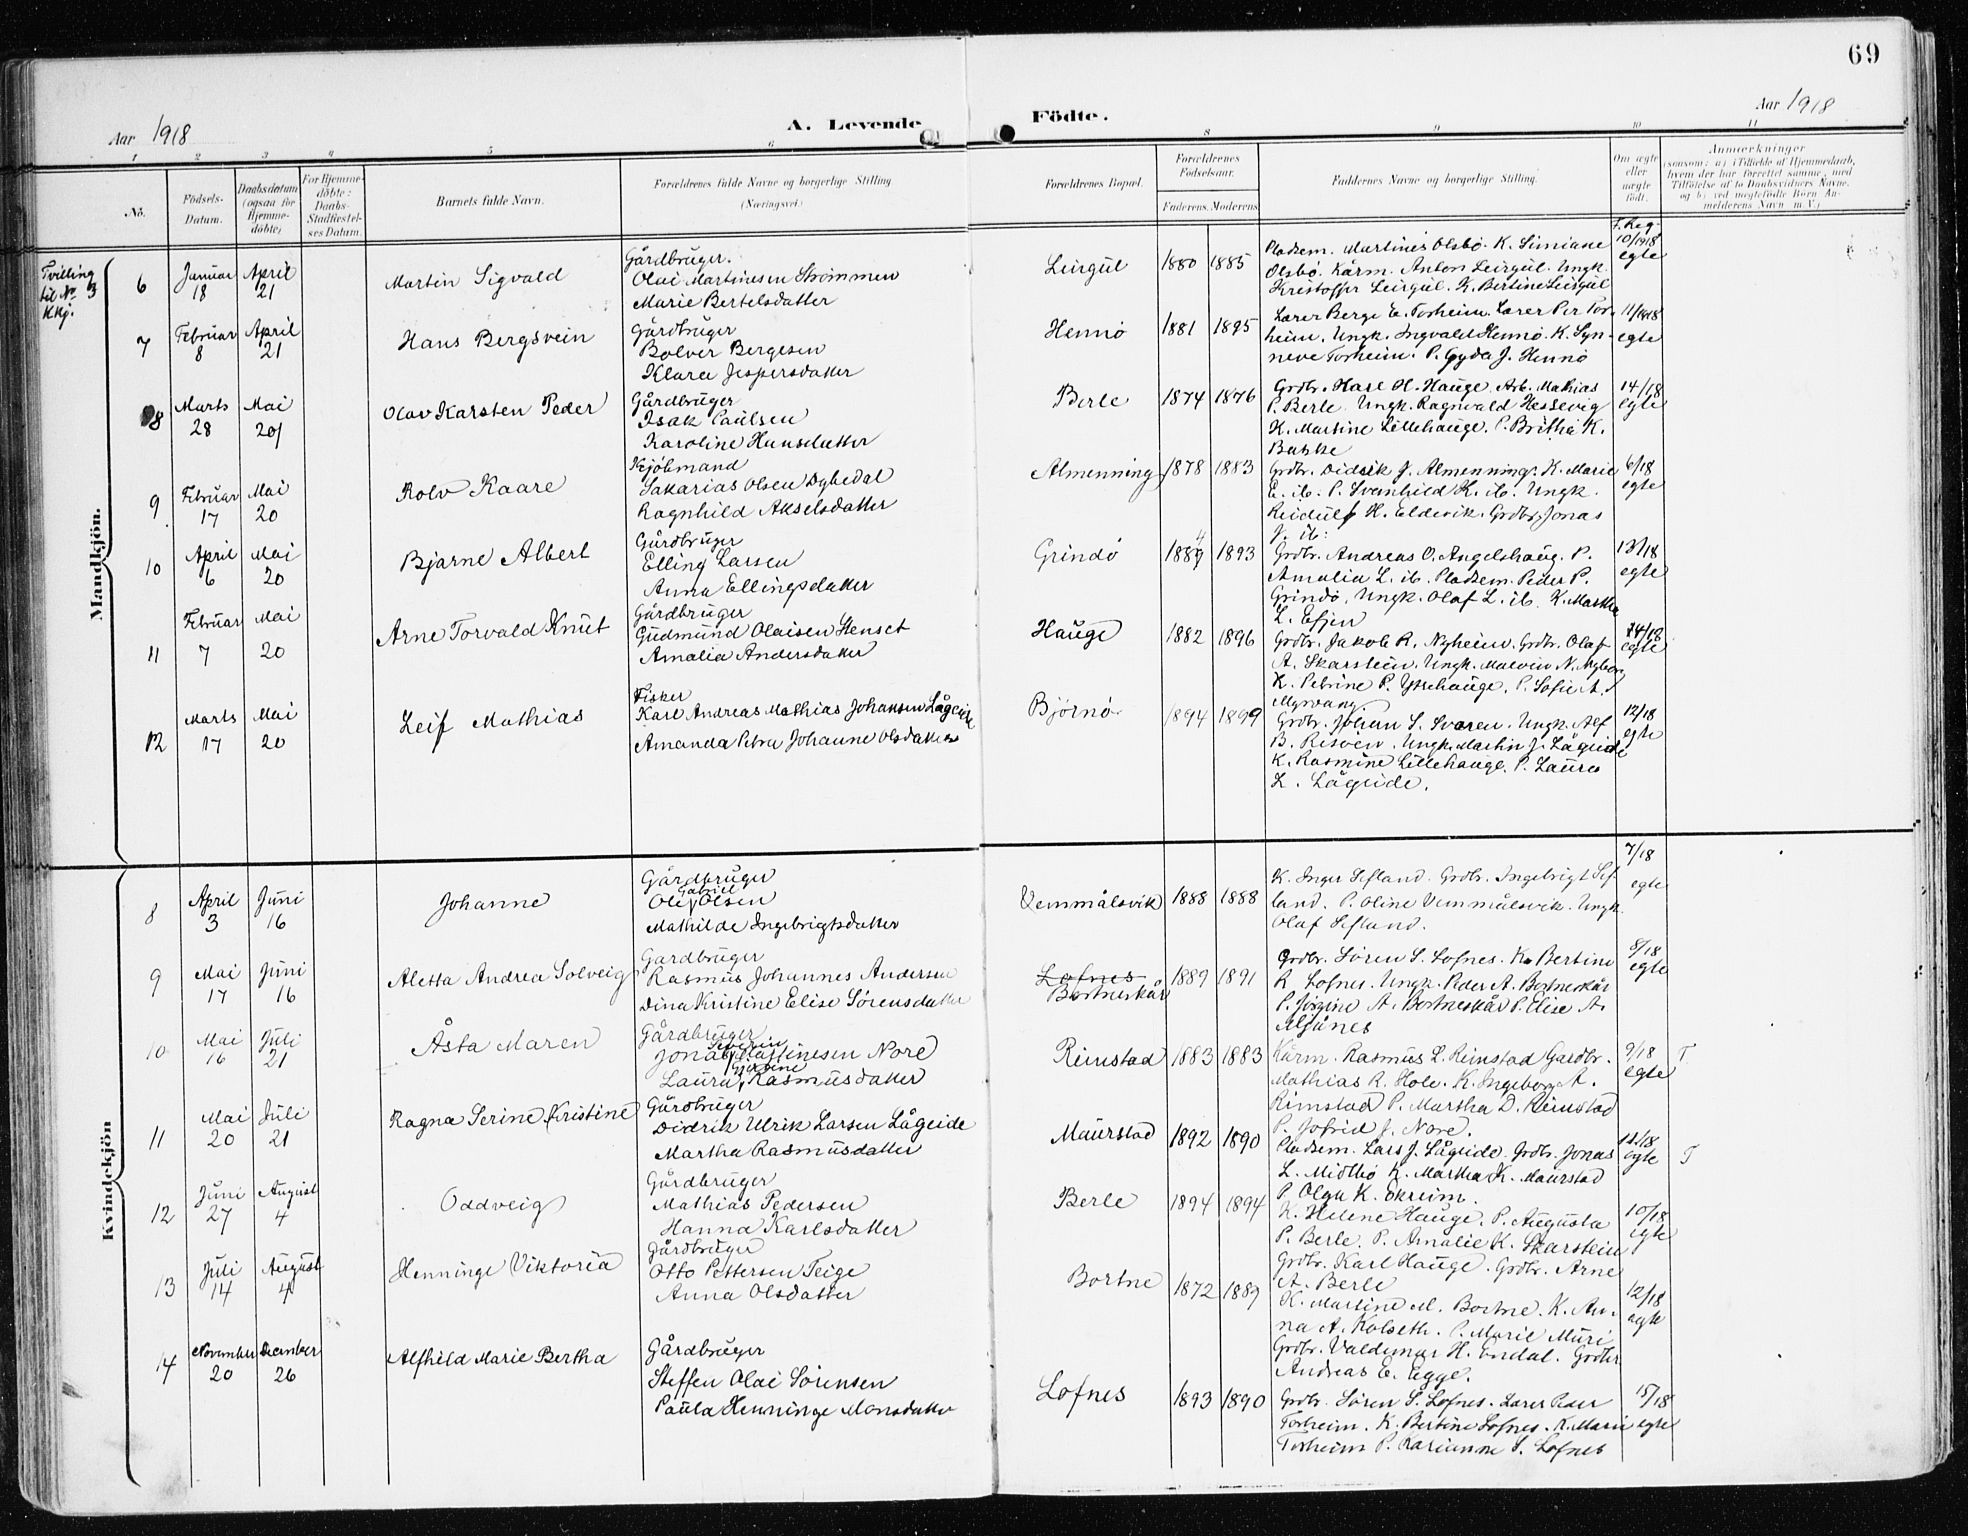 69
Aar 1918
A. Levende
Födte.
Aar 1918
1 2 3 4 5 6 8 9 10 11
No.
Födsels-
Datum.
Daabsdatum
(ogsaa for
Hjemme-
döbte)
For Hjemme-
döbte:
Daabs-
Stadfæstel-
ses Datum.
Barnets fulde Navn.
Forældrenes fulde Navne og borgerlige Stilling
(Næringsvei.)
Forældrenes Bopæl.
Forældrenes
Födselsaar.
Faderens. Moderens
Faddernes Navne og borgerlige Stilling.
Om ægte
eller
uægte
födt.
Anmærkninger
(saasom: a) i Tilfælde af Hjemmedaab,
hvem der har forrettet samme, med
Tilföielse af to Daabsvidners Navne,
og b) ved uægtefödte Börn An-
melderens Navn m. V.)
Mandkjön.
Tvilling
til No 3
Kkj.
6
Januar
18
April
21
Martin Sigvald
Gårdbruger.
Olai Martinesen Strømmen
Marie Bertelsdatter
Leirgul
1880 1885
Pladsem. Martines Olsbø. K. Simiane
Olsbø. Kårm. Anton Leirgul. Ungk.
Kristoffer Leirgul. K. Bertine Leirgul
F. Reg
10/1918
egte
7
Februar
8
April
21
Hans Bergsvein
Gårdbruger
Bolver Bergesen
Klara Jespersdatter
Hennø
1881 1895
Lærer Berge E. Torheim. Lærer Per Tor-
heim. Ungk. Ingvald Hennø. K. Syn-
neve Torheim. P. Gyda J. Hennø
11/1918
egte
8
Marts
28
Mai
20
Olav Karsten Peder
Gårdbruger
Isak Paulsen
Karoline Hansdatter
Berle
1874 1876
Grdbr. Hase H. Hauge. Arb. Mathias
P. Berle. Ungk. Ragnvald Hessevig
K. Martine Lillehauge. P. Britha K.
Bakke
14/18
egte
9
Februar
17
Mai
20
Rolv Kaare
Kjøbmand
Sakarias Olsen Dybedal
Ragnhild Akselsdatter
Almenning
1878 1883
Grdbr. Didrik J. Almenning. K. Marie
E. ib. P. Svanhild K. ib. Ungk.
Reidulf H. Eldevik. Grdbr. Jonas
J. ib.
6/18
egte
10
April
6
Mai
20
Bjarne Albert
Gårdbruger
Elling Larsen
Anna Ellingsdatter
Grindø
1884 1893
Grdbr. Andreas O. Angelshaug. P.
Amalia L. ib. Pladsem. Peder P.
Grindø. Ungk. Olaf L. ib. K. Martha
L. Efjen
13/18
egte
11
Februar
7
Mai
20
Arne Torvald Knut
Gårdbruger
Gudmund Olaisen Henset
Amalia Andersdatter
Hauge
1882 1896
Grdbr. Jakob R. Nyheim. Grdbr. Olaf
A. Skarstein. Ungk. Malvin N. Nybø
K. Petrine P. Ytrehauge. P. Sofie A.
Myrvang.
14/18
egte
12
Marts
17
Mai
20
Leif Mathias
Fisker
Karl Andreas Mathias Johansen Lågeide
Amanda Petra Johanne Olsdatter
Bjørnø
1894 1899
Grdbr. Johan S. Svoren. Ungk. Alf
B. Risven. Ungk. Martin J. Lågeide
K. Rasmine Lillehauge. P. Laura
L. Lågeide.
12/18
egte
Kvindekjön
8
April
3
Juni
16
Johanne
Gårdbruger
Ole Gabriel Olsen
Mathilde Ingebrigtsdatter
Vemmålsvik
1888 1888
K. Inger Sefland. Grdbr. Ingebrigt Sef-
land. P. Oline Vemmålsvik. Ungk.
Olaf Sefland.
7/18
egte
9
Mai
17
Juni
16
Aletta Andrea Solveig
Gårdbruger
Rasmus Johannes Andersen
Dina Kristine Elise Sørensdatter
Lofnes
Bortneskår
1889 1891
Grdbr. Søren S. Lofnes. K. Bertine
R. Lofnes. Ungk. Peder A. Bortneskår
P. Jørgine A. Bortneskår P. Elise A.
Aljånes
8/18
egte
10
Mai
16
Juli
21
Åsta Maren
Gårdbruger
Jonas Severin Martinesen Nore
Laura Gjertine Rasmusdatter
Rimstad
1883 1883
Kårm. Rasmus L. Rimstad Gardbr.
Mathias R. Hole. K. Ingeborg A.
Rimstad P. Martha D. Rimstad
P. Jofrid J. Nore.
9/18
egte
T
11
Mai
20
Juli
21
Ragna Serine Kristine
Gårdbruger
Didrik Ulrik Larsen Lågeide
Martha Rasmusdatter
Maurstad
1892 1890
Pladsem. Lars J. Lågeide. Grdbr. Jonas
L. Midtbø K. Martha K. Maurstad
P. Olga K. Ekreim.
11/18
egte
T
12
Juni
27
August
4
Oddveig
Gårdbruger
Mathias Pedersen
Hanna Karlsdatter
Berle
1894 1894
K. Helene Hauge. P. Augusta
P. Berle. P. Amalie K. Skarstein
Grdbr. Karl Hauge. Grdbr. Arne
A. Berle
10/18
egte
13
Juli
14
August
4
Henninge Viktoria
Gårdbruger
Otto Pettersen Teige
Anna Olsdatter
Bortne
1872 1889
K. Martine M. Bortne. K. An-
na A. Kolseth. P. Marie Muri
Grdbr. Valdemar H. Endal. Grdbr.
Andreas E. Egge.
12/18
egte
14
November
20
December
26
Alfhild Marie Bertha
Gårdbruger
Steffen Olai Sørensen
Paula Henninge Monsdatter
Lofnes
1893 1890
Grdbr. Søren S. Lofnes. Lærer Peder
Torheim. K. Bertine Lofnes. K. Marie
Torheim P. Karianne S. Lofnes
15/18
egte